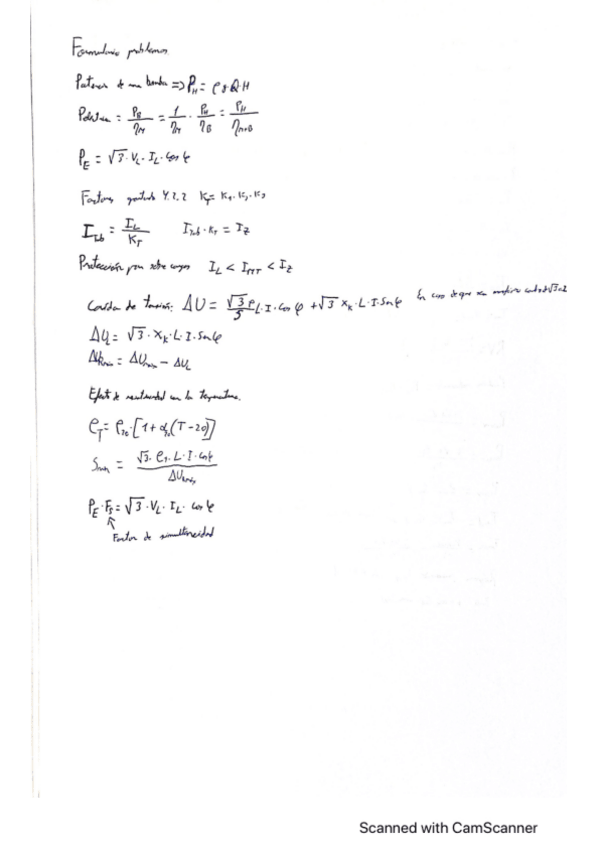 Formulario problemas
Potencia de una bomba => P_H = ρ g Q · H
P_eléctrica = P_B / η_M = 1 / η_M · P_H / η_B = P_H / η_M+B
P_E = √3 · V_L · I_L · cos φ
Factores 4.2.2 K_T = K_1 · K_2 · K_3
I_Tab = I_L / K_T    I_Tab · K_T = I_Z
Protección para sobrecargas I_L < I_INT < I_Z
Caída de tensión: ΔU = √3 ρ / S L · I · cos φ + √3 X_K · L · I · Sen φ En caso de que sea monofásico cambiar √3 a 2
ΔU_L = √3 · X_K · L · I · Sen φ
ΔU_Rmáx = ΔU_máx − ΔU_L
Efecto de resistividad con la temperatura.
ρ_T = ρ_20 · [1 + α_20 (T − 20)]
S_min = √3 · ρ_T · L · I · cos φ / ΔU_Rmáx
P_E · F_S = √3 · V_L · I_L · cos φ
Factor de simultaneidad
Scanned with CamScanner